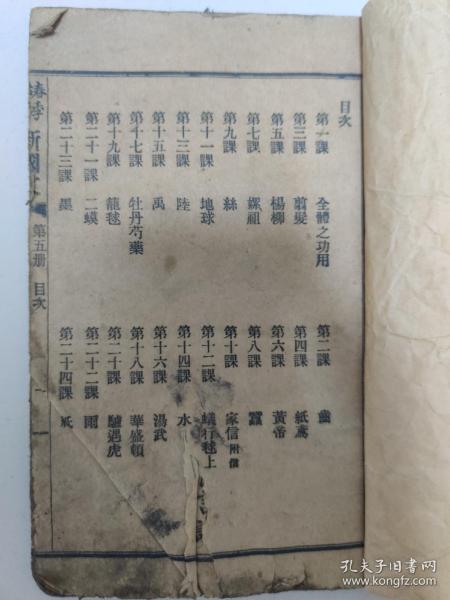 目次
第一課　全體之功用　第二課　齒
第三課　翦髮　第四課　紙鳶
第五課　楊柳　第六課　黃帝
第七課　嫘祖　第八課　蠶
第九課　絲　第十課　家信附信
第十一課　地球　第十二課　蟻行毬上
第十三課　陸　第十四課　水
第十五課　禹　第十六課　湯武
第十七課　牡丹芍藥　第十八課　華盛頓
第十九課　籠毬　第二十課　驢遇虎
第二十一課　二蟆　第二十二課　雨
第二十三課　墨　第二十四課　紙
新國 第五册 目次
孔夫子旧书网
www.kongfz.com